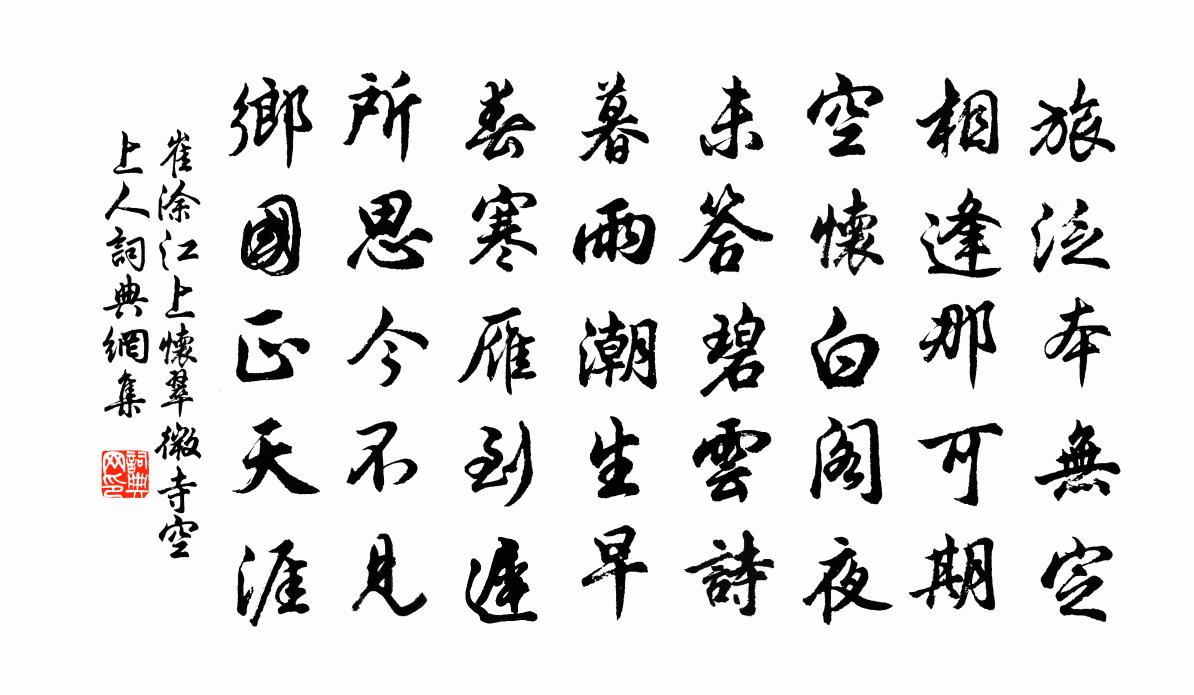 旅泛本無定
相逢那可期
空懷白閣夜
未答碧雲詩
暮雨潮生早
春寒雁到遲
所思今不見
鄉國正天涯
崔涂江上懷翠微寺空
上人詞典網集
詞典网印